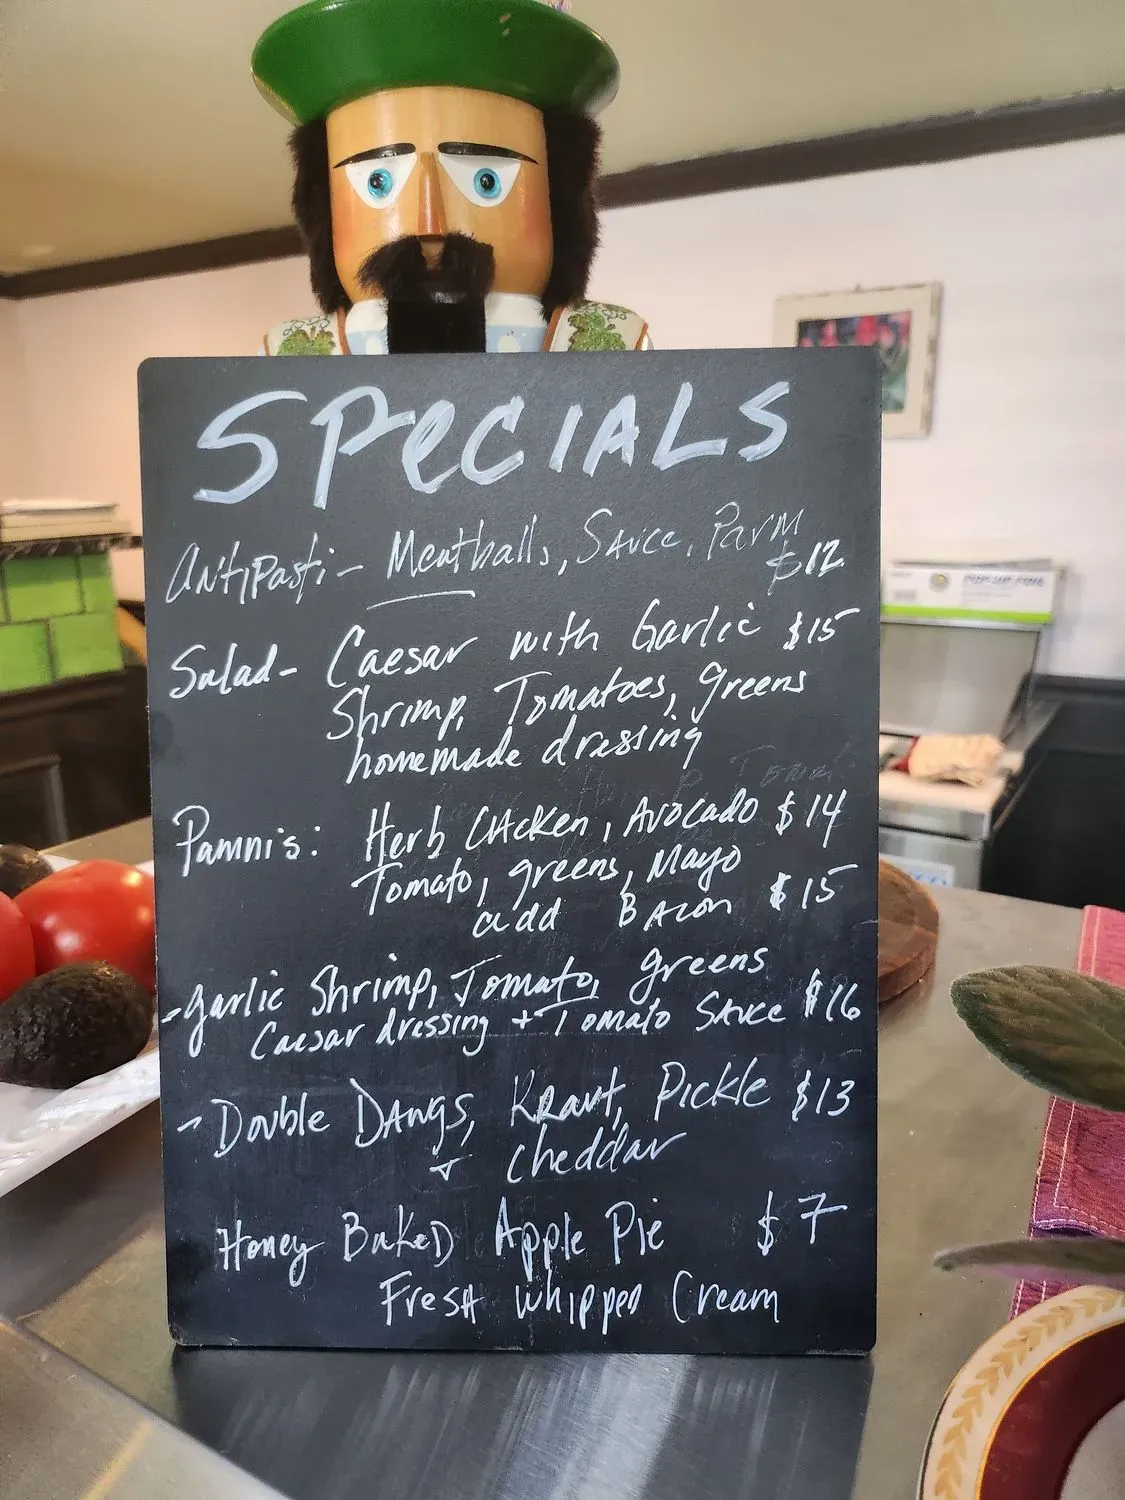 SPeCIALS
Antipasti - Meatballs, Sauce, Parm
$12
Salad - Caesar with Garlic $15
Shrimp, Tomatoes, greens
homemade dressing
Pannnis: Herb Chicken, Avocado $14
Tomato, greens, Mayo
add Bacon $15
- garlic Shrimp, Tomato, greens
Caesar dressing + Tomato Sauce $16
- Double Dawgs, Kraut, Pickle $13
+ Cheddar
Honey Baked Apple Pie $7
Fresh whipped Cream